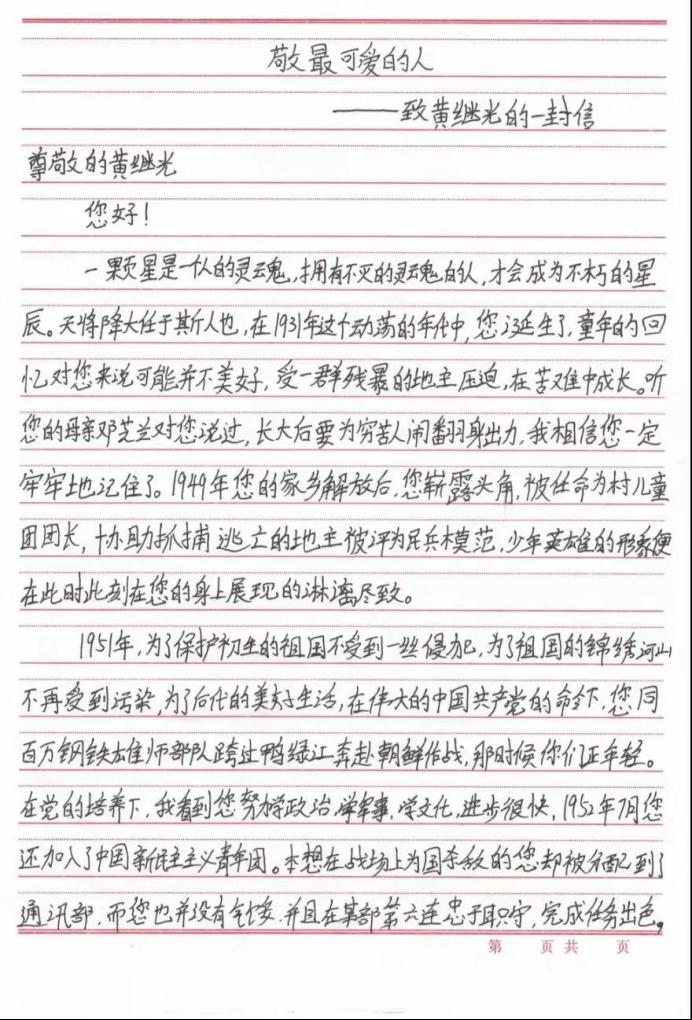 敬最可爱的人
——致黄继光的一封信
尊敬的黄继光
您好！
一颗星是一个人的灵魂，拥有不灭的灵魂的人，才会成为不朽的星
辰。天将降大任于斯人也，在1931年这个动荡的年代中，您诞生了，童年的回
忆对您来说可能并不美好，受一群残暴的地主压迫，在苦难中成长。听
您的母亲邓芳兰对您说过，长大后要为穷苦人闹翻身出力，我相信您一定
牢牢地记住了。1949年您的家乡解放后，您崭露头角，被任命为村儿童
团团长，协助抓捕逃亡的地主被评为民兵模范，少年英雄的形象便
在此时此刻在您的身上展现的淋漓尽致。
1951年，为了保护初生的祖国不受到一丝侵犯，为了祖国的锦绣河山
不再受到污染，为了后代的美好生活，在伟大的中国共产党的命令下，您同
百万钢铁雄师部队跨过鸭绿江奔赴朝鲜作战，那时候你们正年轻。
在党的培养下，我看到您努力学政治，学军事，学文化，进步很快，1952年7月您
还加入了中国新民主主义青年团。本想在战场上为国杀敌的您却被分配到了
通讯部，而您也并没有气馁，并且在某部第六连忠于职守，完成任务出色。
第 页 共 页